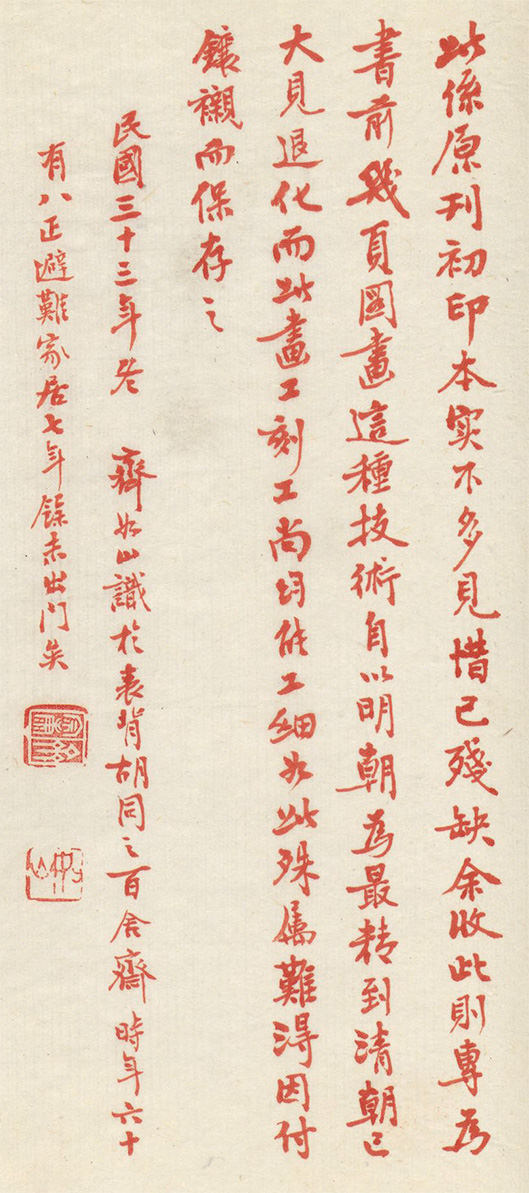 此係原刊初印本实不多見惜已殘缺余收此則專為
書前幾頁圖畫這種技術自以明朝為最精到清朝已
大見退化而此畫工刻工尚均能工細如此殊属難得因付
鑲襯而保存之
民國三十三年冬 齊如山識於表背胡同之百舍齋時年六十
有八正避難家居七年餘未出門矣